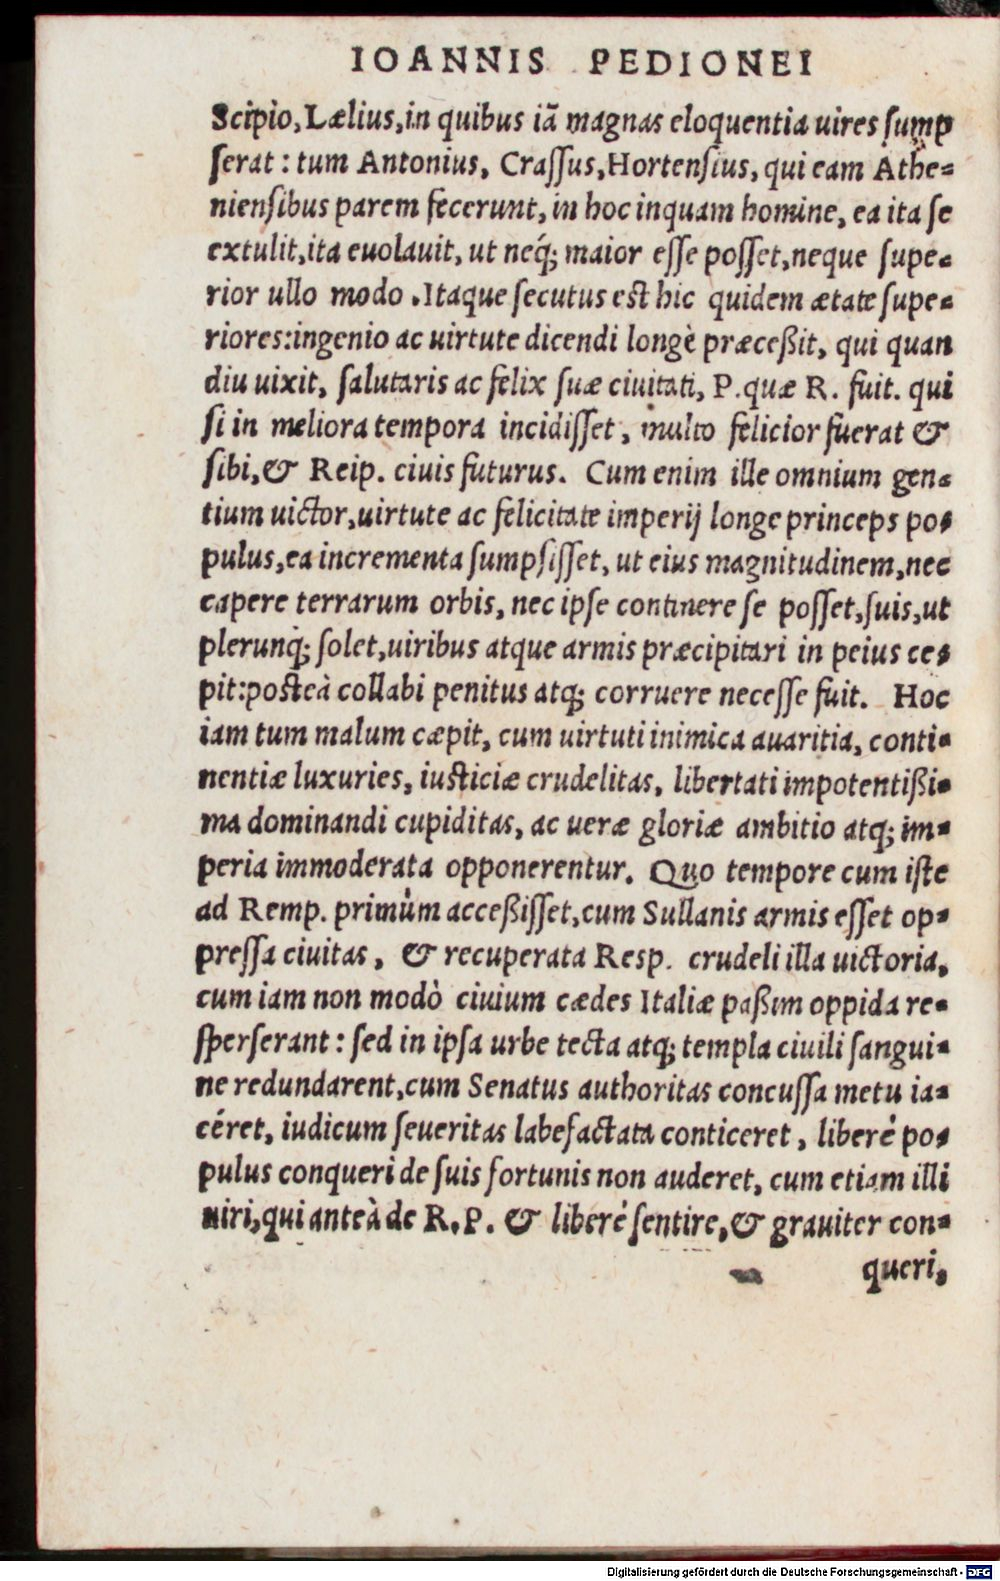 IOANNIS PEDIONEI
Scipio, Lælius, in quibus iã magnas eloquentia uires sump
serat: tum Antonius, Crassus, Hortensius, qui eam Athe-
niensibus parem fecerunt, in hoc inquam homine, ea ita se
extulit, ita euolauit, ut neq́; maior esse posset, neque supe-
rior ullo modo. Itaque secutus est hic quidem ætate supe-
riores: ingenio ac uirtute dicendi longè præceßit, qui quan
diu uixit, salutaris ac felix suæ ciuitati, P. quæ R. fuit. qui
si in meliora tempora incidisset, multo felicior fuerat &
sibi, & Reip. ciuis futurus. Cum enim ille omnium gen-
tium uictor, uirtute ac felicitate imperij longe princeps po-
pulus, ea incrementa sumpsisset, ut eius magnitudinem, nec
capere terrarum orbis, nec ipse continere se posset, suis, ut
plerunq́; solet, uiribus atque armis præcipitari in peius ce-
pit: posteà collabi penitus atq; corruere necesse fuit. Hoc
iam tum malum cæpit, cum uirtuti inimica auaritia, conti-
nentiæ luxuries, iusticiæ crudelitas, libertati impotentißi-
ma dominandi cupiditas, ac ueræ gloriæ ambitio atq; im-
peria immoderata opponerentur. Quo tempore cum iste
ad Remp. primùm acceßisset, cum Sullanis armis esset op-
pressa ciuitas, & recuperata Resp. crudeli illa uictoria,
cum iam non modò ciuium cædes Italiæ paßim oppida re-
sperserant: sed in ipsa urbe tecta atq; templa ciuili sangui-
ne redundarent, cum Senatus authoritas concussa metu ia-
céret, iudicum seueritas labefactata conticeret, liberè po-
pulus conqueri de suis fortunis non auderet, cum etiam illi
uiri, qui anteà de R. P. & liberè sentire, & grauiter con-
queri,
Digitalisierung gefördert durch die Deutsche Forschungsgemeinschaft - DFG